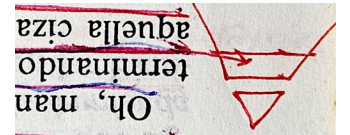 Oh, man
terminando
aquella ciza